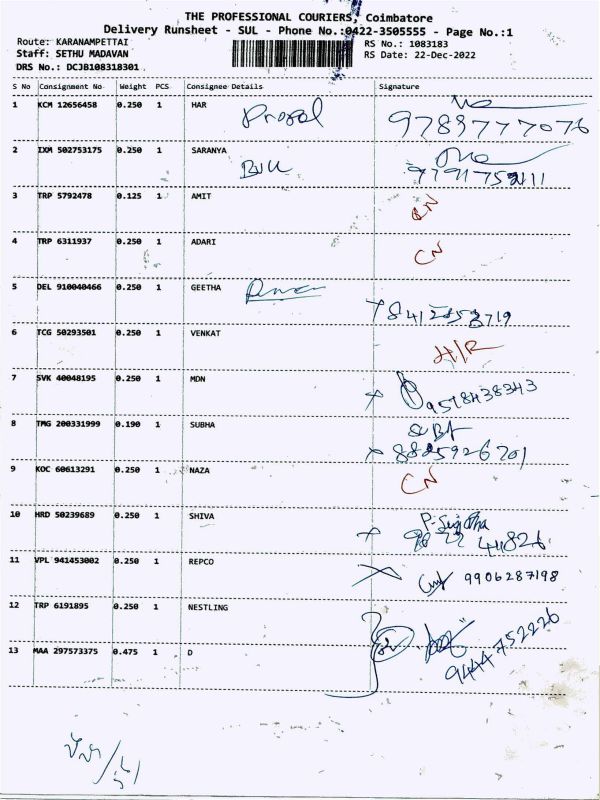 THE PROFESSIONAL COURIERS, Coimbatore
Delivery Runsheet - SUL - Phone No.:0422-3505555 - Page No.:1
Route: KARANAMPETTAI
RS No.: 1083183
Staff: SETHU MADAVAN
RS Date: 22-Dec-2022
DRS No.: DCJB108318301
S No Consignment No Weight PCS Consignee Details Signature
1 KCM 12656458 0.250 1 HAR
9789777076
2 IXM 502753175 0.250 1 SARANYA
3 TRP 5792478 0.125 1 AMIT
4 TRP 6311937 0.250 1 ADARI CN
5 DEL 910040466 0.250 1 GEETHA
6 TCG 50293501 0.250 1 VENKAT
7 SVK 40048195 0.250 1 MDN
9578438343
8 TMG 200331999 0.190 1 SUBHA
8825926701
9 KOC 60613291 0.250 1 NAZA CN
10 HRD 50239689 0.250 1 SHIVA
11 VPL 941453002 0.250 1 REPCO
9906287198
12 TRP 6191895 0.250 1 NESTLING
13 MAA 297573375 0.475 1 D
9444752226